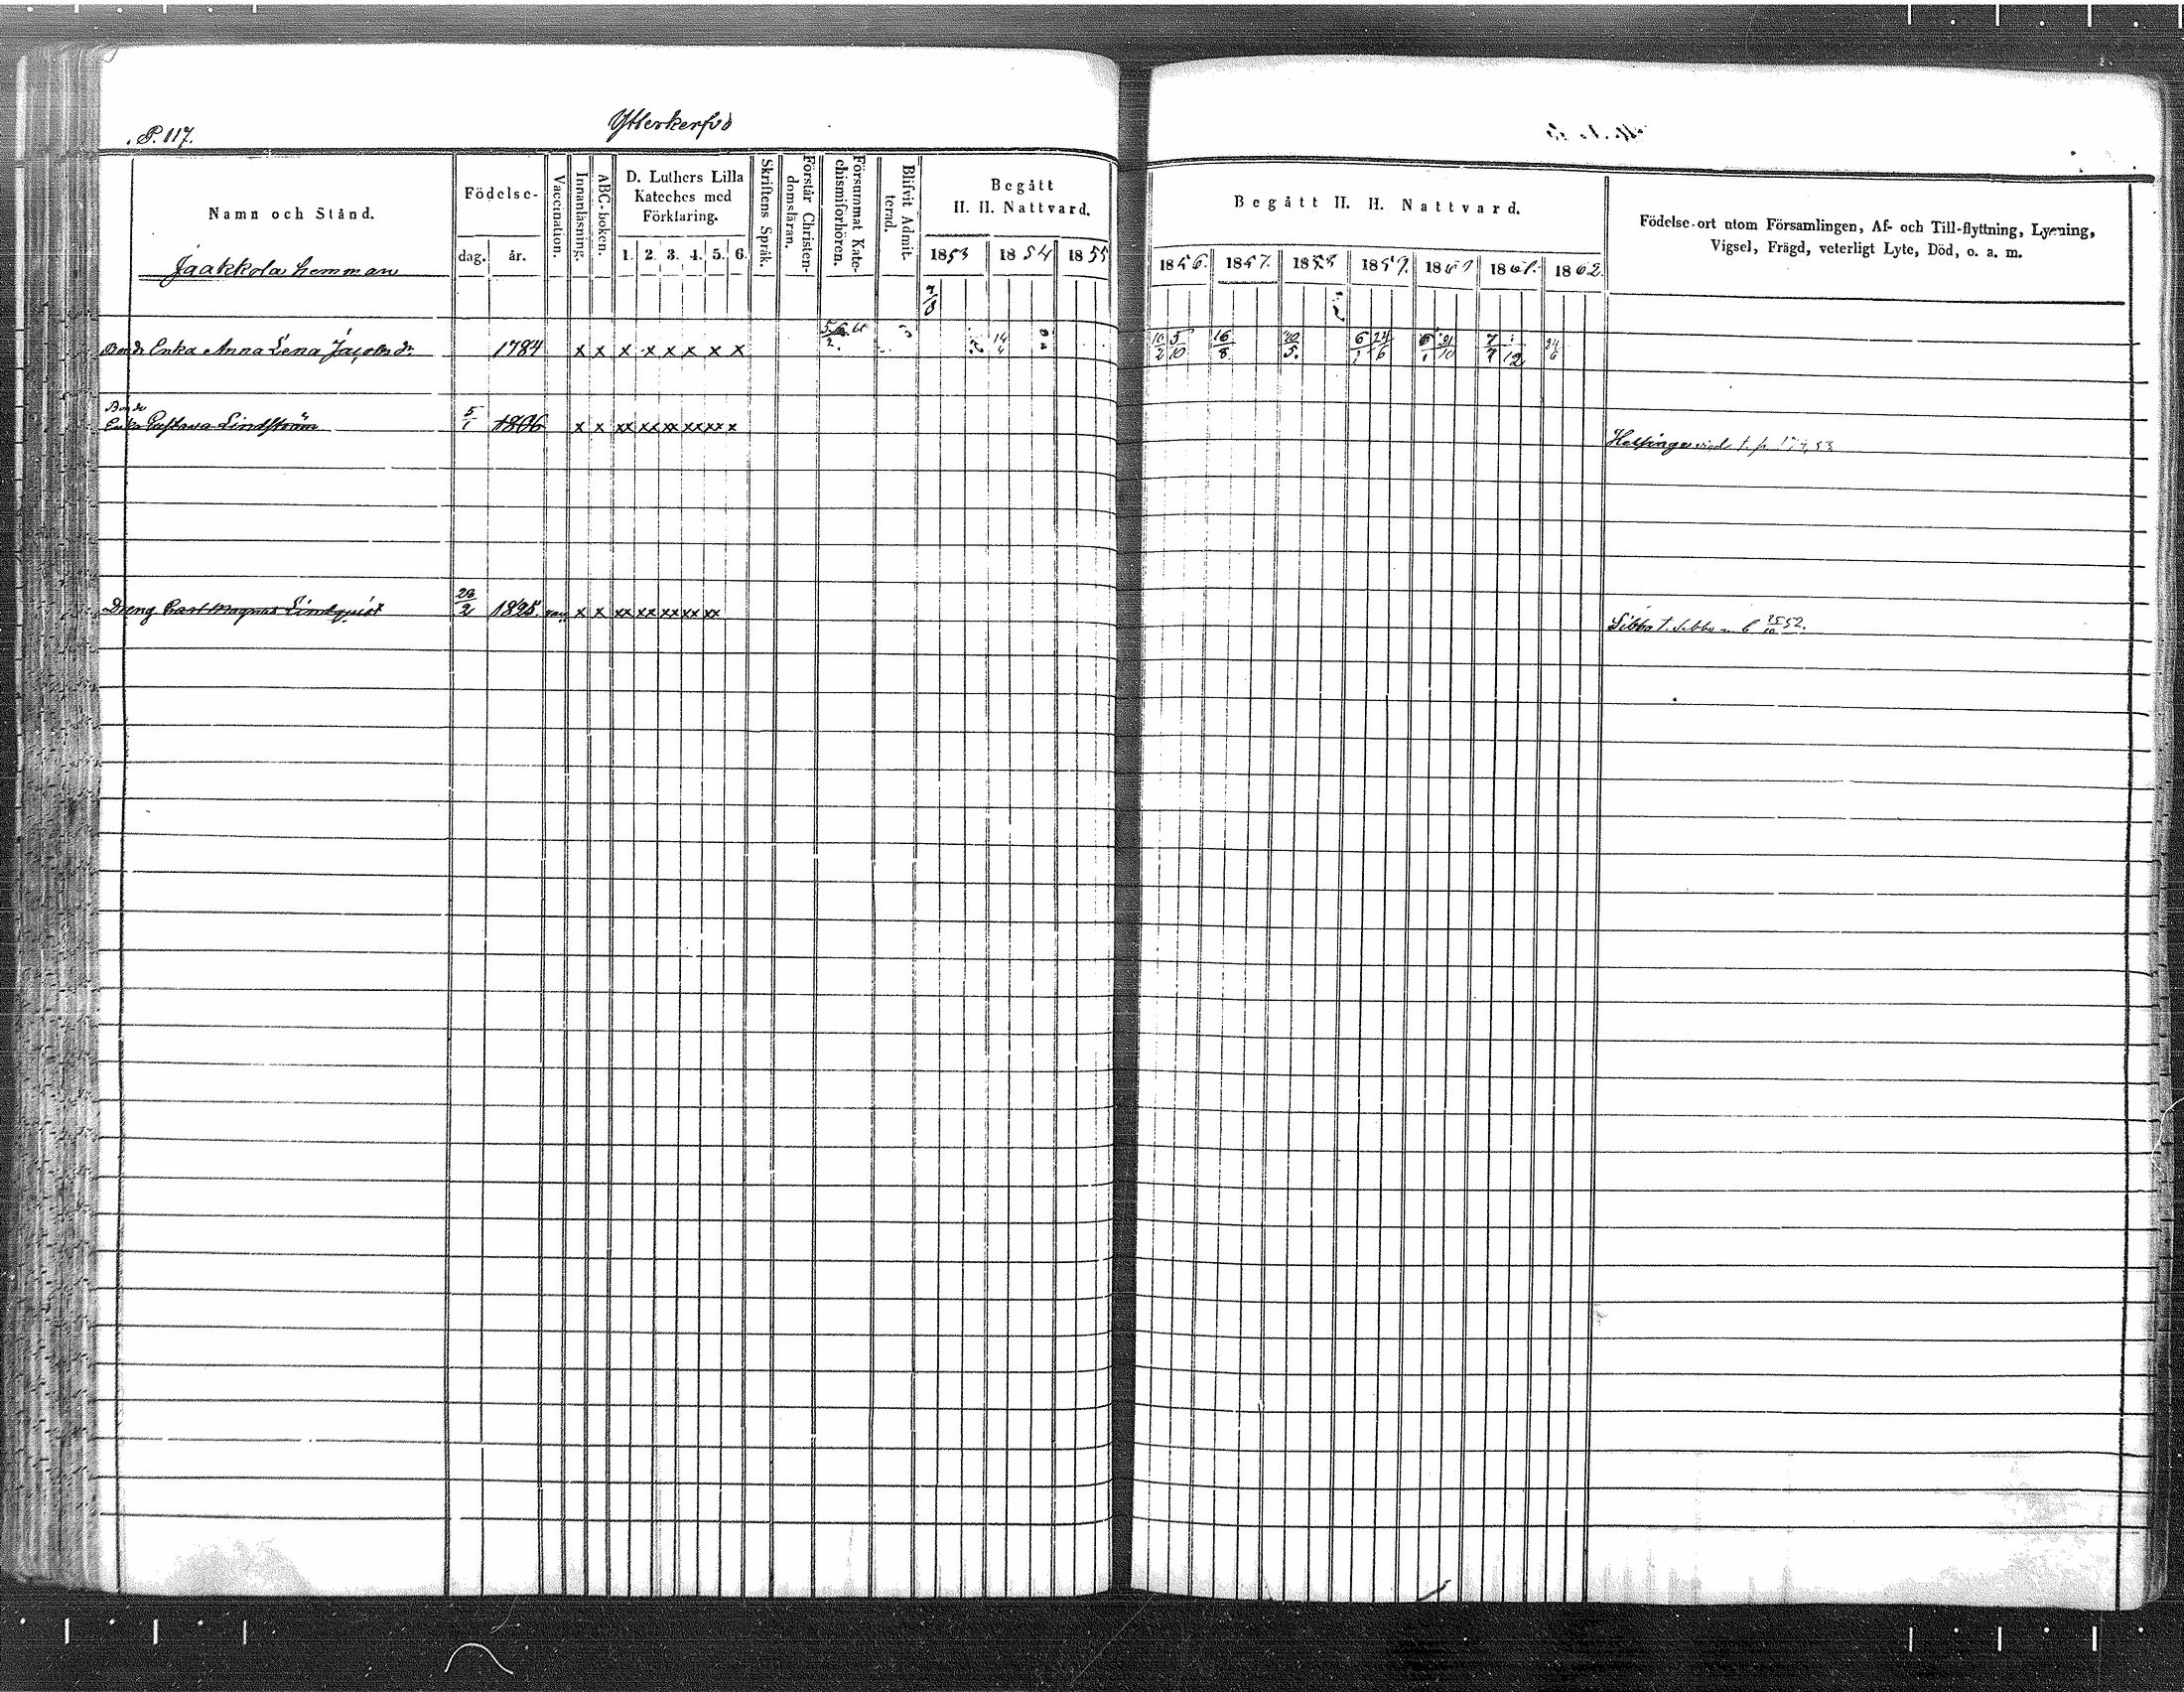 P. 117.
Ytterkerfvo
Namn och Stånd.
Jaakkola hemman
Födelse-
dag. år.
Vaccination.
Innanläsning.
ABC-boken.
D. Luthers Lilla
Kateches med
Förklaring.
1. 2. 3. 4. 5. 6.
Skriftens Språk.
Förstår Christen-
domsläran.
Försummat Kate-
chismiförhören.
Blifvit Admit-
terad.
Begått
H. H. Nattvard.
1853 1854 1855
Begått H. H. Nattvard.
1856. 1857. 1858 1859. 1860 1861. 1862.
Födelse-ort utom Församlingen, Af- och Till-flyttning, Lysning,
Vigsel, Frägd, veterligt Lyte, Död, o. a. m.
7/8
Bonde Enka Anna Lena Jacobsdr 1784 x x x x x x x x 10/2 5/10 16/8 6/1 24/6 7/7 24/6
Bonde
Enka Gustava Lindström 5/1 1806 x x xx xx xx xx xx x Helsinge
Dreng Carl Magnus Lindquist 28/2 1825. vac. x x xx xx xx xx xx Sibbo t. Sibbo